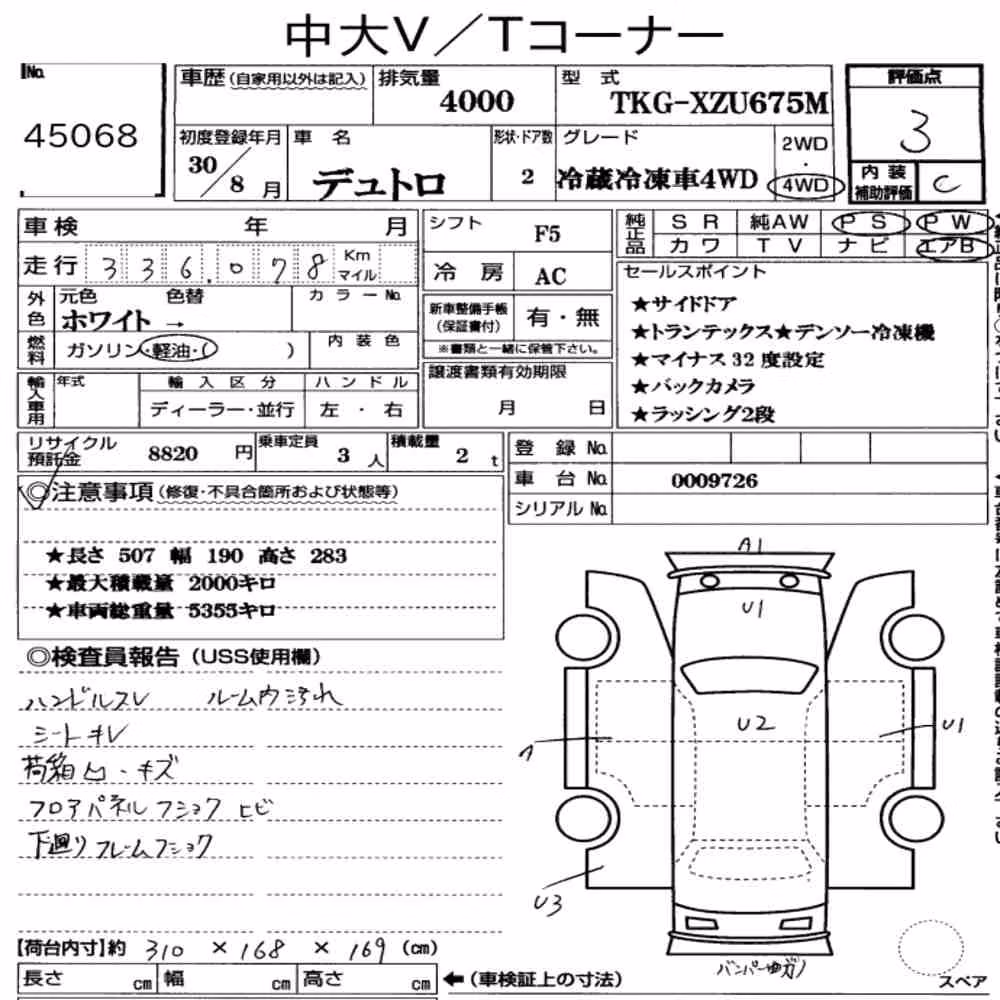 中大V／Tコーナー
No.
45068
車歴（自家用以外は記入）
排気量
4000
型式
TKG-XZU675M
評価点
3
初度登録年月
30／8月
車名
デュトロ
形状・ドア数
2
グレード
冷蔵冷凍車4WD
2WD
・
4WD
内装
補助評価
C
車検 年 月
シフト
F5
純正品
SR 純AW PS PW
カワ TV ナビ エアB
走行 336.078 Km
マイル
冷房
AC
セールスポイント
★サイドドア
★トランテックス★デンソー冷凍機
★マイナス32度設定
★バックカメラ
★ラッシング2段
外色
元色 色替
ホワイト →
カラーNo.
新車整備手帳
（保証書付）
有・無
※書類と一緒に保管下さい。
燃料
ガソリン・軽油・( )
内装色
譲渡書類有効期限
月 日
輸入車用
年式
輸入区分
ディーラー・並行
ハンドル
左・右
リサイクル
預託金
8820 円
乗車定員
3人
積載量
2 t
登録No.
車台No.
0009726
シリアルNo.
◎注意事項（修復・不具合箇所および状態等）
★長さ 507 幅 190 高さ 283
★最大積載量 2000キロ
★車両総重量 5355キロ
◎検査員報告（USS使用欄）
ハンドルスレ ルーム内汚れ
シートキレ
荷箱凹・キズ
フロアパネルフショク ヒビ
下廻りフレームフショク
A1
U1
U2
U1
U3
【荷台内寸】約 310 × 168 × 169 (cm)
長さ cm 幅 cm 高さ cm
←（車検証上の寸法）
スペア